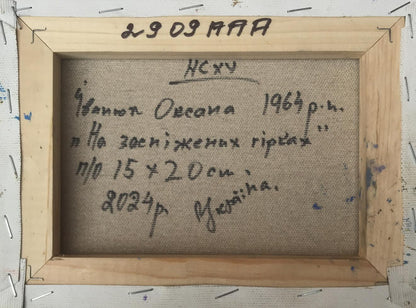 2909AAA
НСХУ
Іванюк Оксана 1964 р.н.
"На засніжених гірках"
п/о 15 x 20 cm.
2024р. Україна.